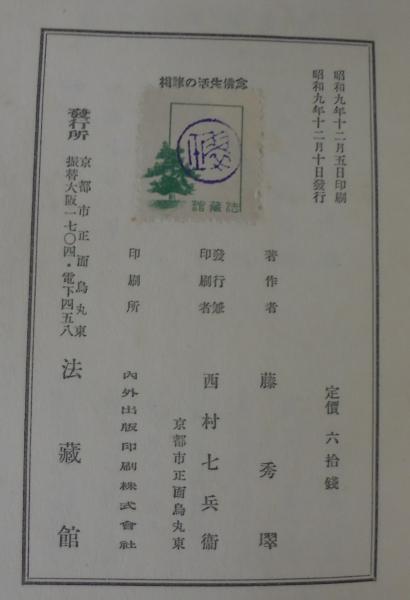 念佛生活の諸相
昭和九年十二月五日印刷
昭和九年十二月十日發行
定價 六拾錢
著作者 藤秀璻
發行兼印刷者 西村七兵衞
京都市正面烏丸東
印刷所 內外出版印刷株式會社
發行所 京都市正面烏丸東
振替大阪一七〇四・電下四五八
法藏館
法藏館